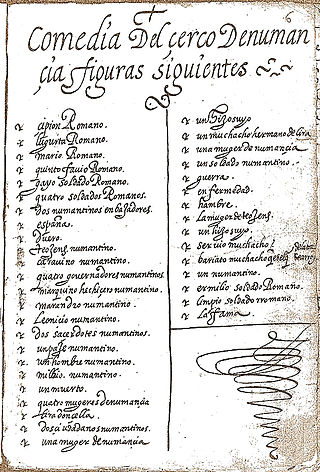 6
Comedia Del cerco Denuman
çia figuras siguientes
cipion Romano.
Iugurta Romano.
mario Romano.
quinto favio Romano.
gayo soldado Romano.
quatro soldados Romanos.
Dos numantinos enbaxadores.
españa.
Duero.
teogens. numantino.
caravino numantino.
quatro governadores numantinos
marquino hechizero numantino.
marandro numantino.
Leonicio numantino.
dos sacerdotes numantinos.
un paje numantino.
un hombre numantino
milbio. numantino.
un muerto.
quatro mugeres denumançia
lira donçella
dos ciudadanos numantinos.
una muger de numancia
un hijo suyo
un muchacho hermano de lira
una muger de numancia
un soldado numantino.
guerra.
enfermedad.
hambre.
La muger de teogens.
un hijo suyo.
servio muchacho
bariato muchacho
un numantino.
ermilio soldado Romano.
limpio soldado rromano.
La Fama